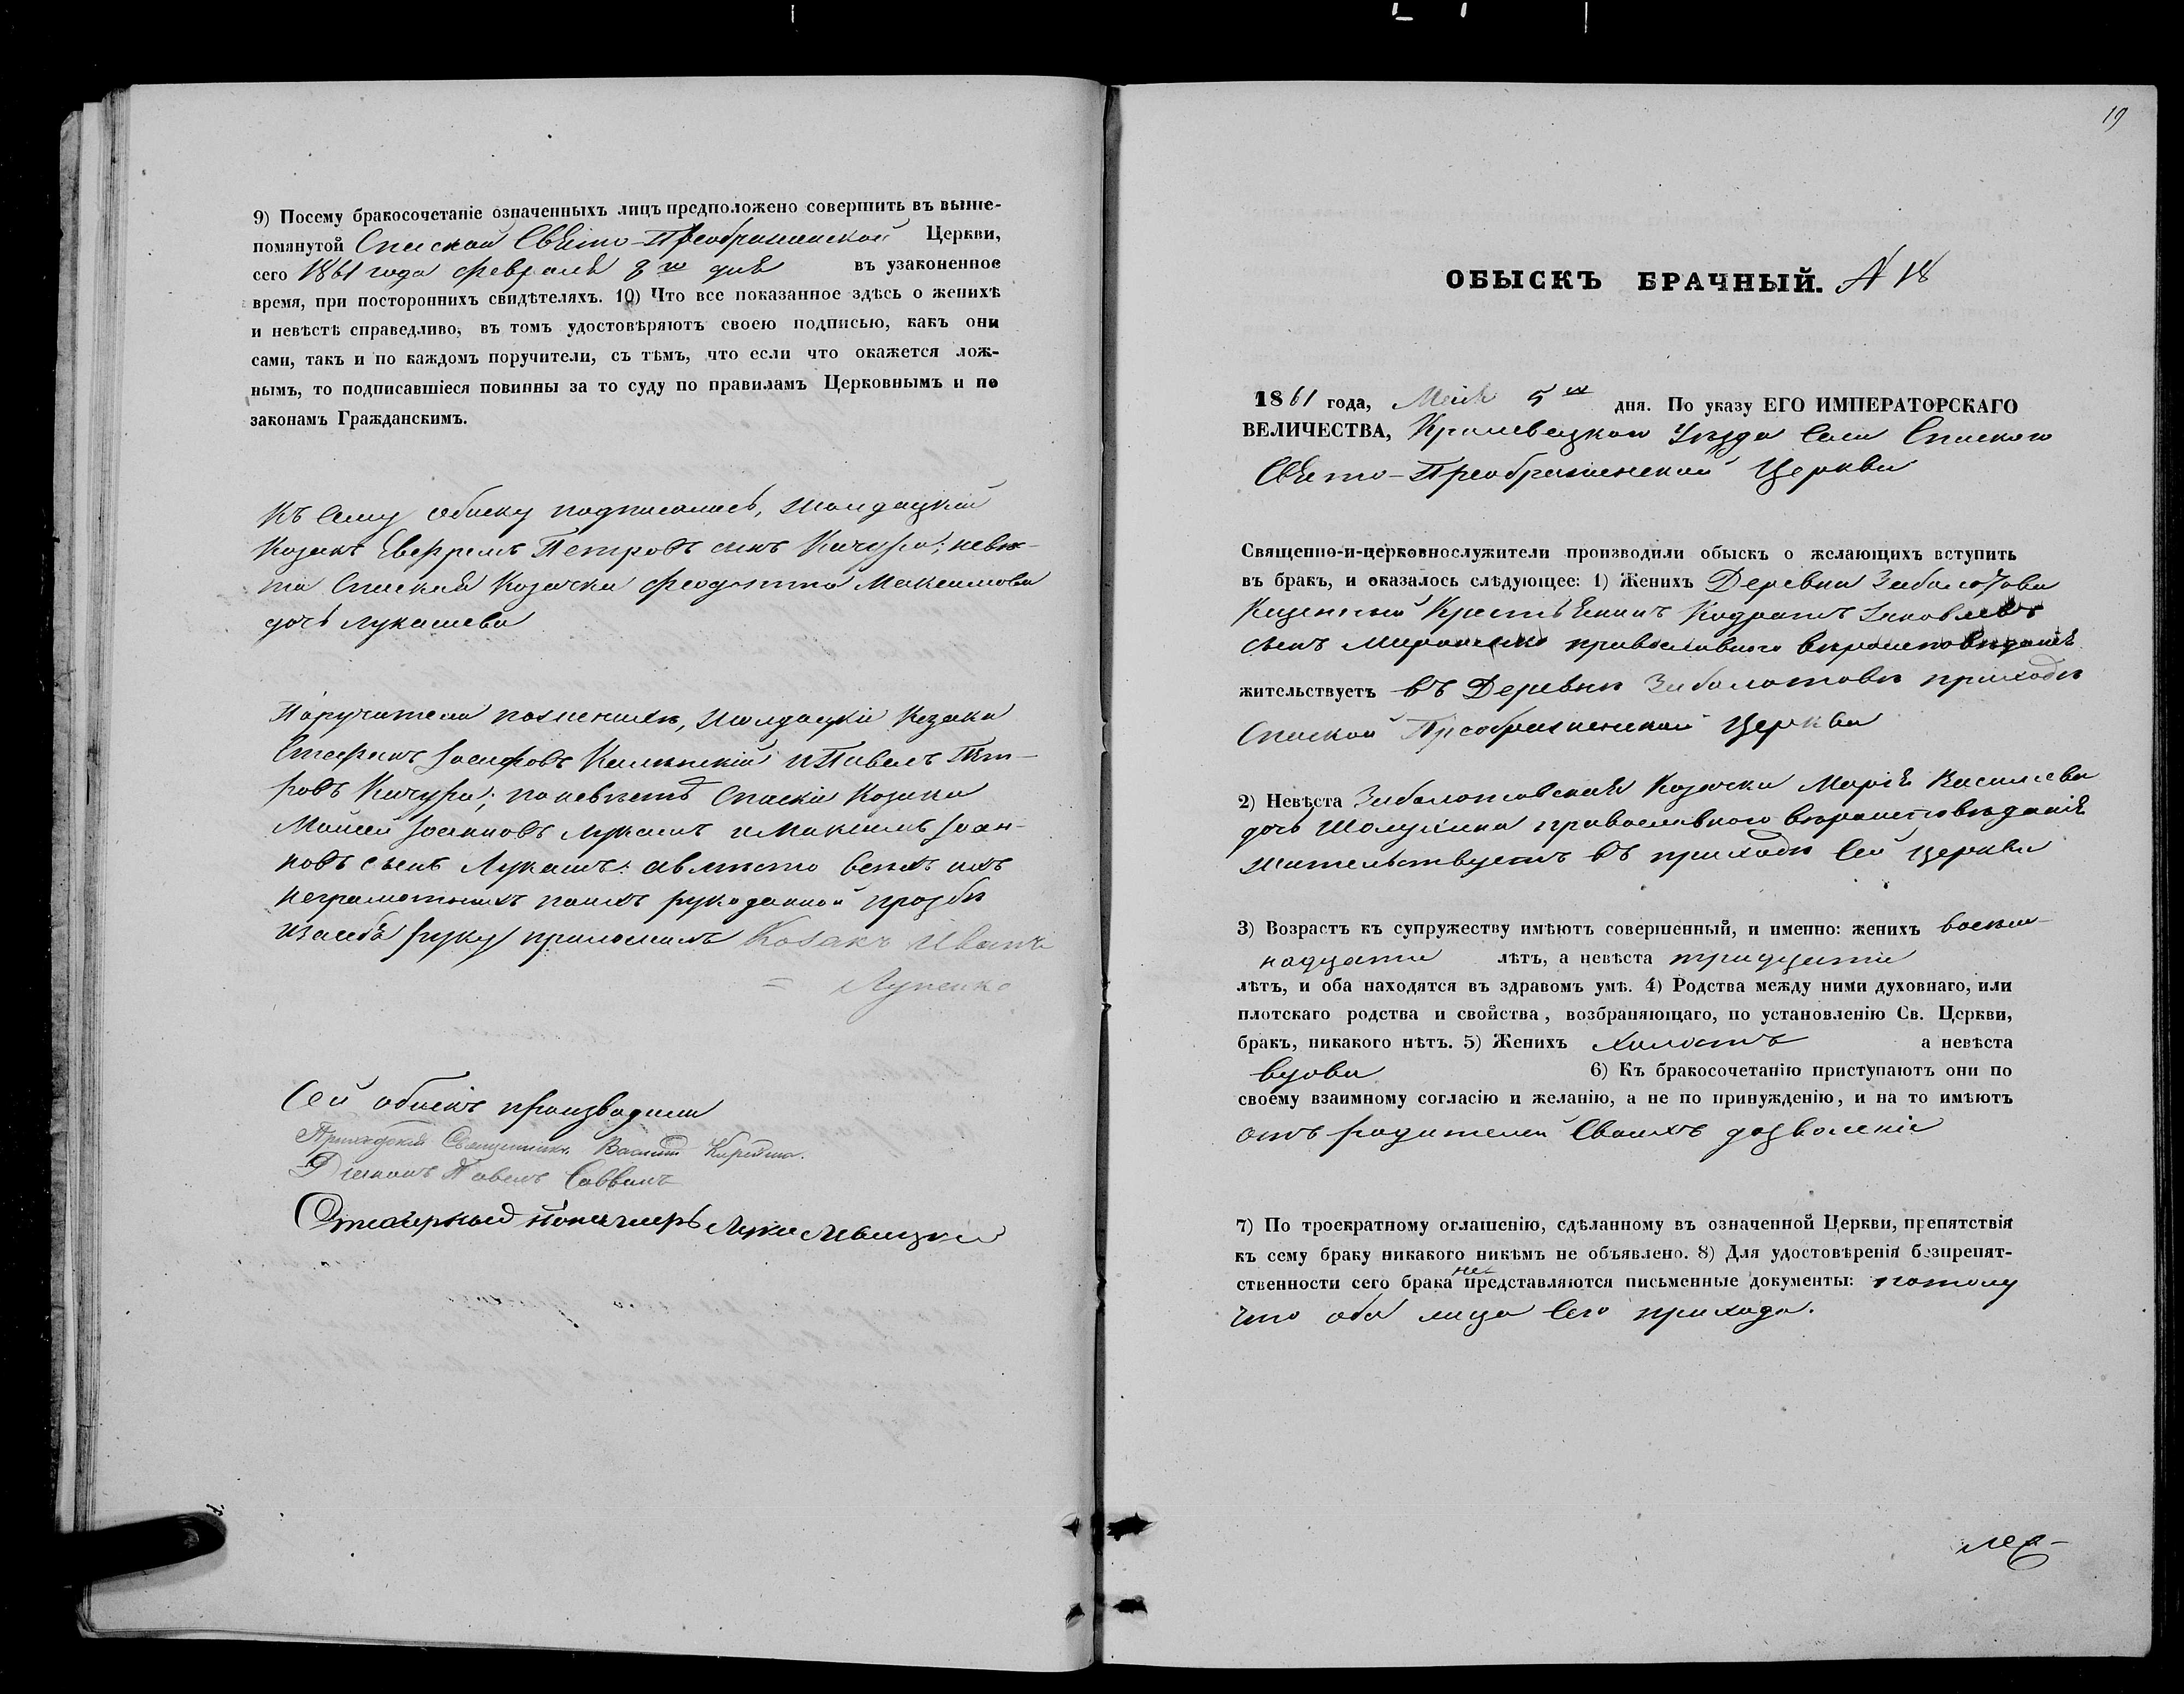 9) Посему бракосочетаніе означенныхъ лицъ предположено совершить въ выше-
помянутой Спаской Свято-Преображенской Церкви,
сего 1861 года февраля 8го дня въ узаконенное
время, при постороннихъ свидѣтеляхъ. 10) Что все показанное здѣсь о женихѣ
и невѣстѣ справедливо, въ томъ удостовѣряютъ своею подписью, какъ они
сами, такъ и по каждомъ поручители, съ тѣмъ, что если что окажется лож-
нымъ, то подписавшіеся повинны за то суду по правиламъ Церковнымъ и по
законамъ Гражданскимъ.
Къ сему обыску подписались,
Козакъ Евфремъ Петровъ сынъ Качура; невѣ-
та Спаская Козачка Феодотта Максимова
дочь Лукашева
Поручители по женихѣ, Козаки
Стефанъ Іосифовъ и Павелъ Пет-
ровъ Качура; по невѣстѣ Спаскіе Козаки
Мойсей Іоанновъ Лукашъ и Максимъ Іоан-
новъ сынъ Лукашъ: а вместо всехъ ихъ
неграмотныхъ по ихъ рукоданной прозбѣ
и за себя руку приложилъ Козакъ Иванъ
= Лупенко
Сей обыскъ производили
Приходскій Священникъ Василій
Діаконъ Павелъ Саввичъ
пономарь Лука Левицкій
19
ОБЫСКЪ БРАЧНЫЙ. № 18
1861 года, Мая 5го дня. По указу ЕГО ИМПЕРАТОРСКАГО
ВЕЛИЧЕСТВА, Кролевецкого Уѣзда Села Спаского
Свято-Преображенской Церкви
Священно-и-церковнослужители производили обыскъ о желающихъ вступить
въ бракъ, и оказалось слѣдующее: 1) Женихъ Деревни Заболотова
Казенный Крестьянинъ Кодратъ Іаковлевъ
сынъ Мироненко православного вѣроисповѣданія
жительствуетъ въ Деревнѣ Заболотовѣ приходѣ
Спаской Преображенской Церкви
2) Невѣста Заболотовская Козачка Марія Василиева
дочь православного вѣроисповѣданія
жительствуетъ въ приходѣ сей Церкви
3) Возрастъ къ супружеству имѣютъ совершенный, и именно: женихъ восем-
надцати лѣтъ, а невѣста тридцати
лѣтъ, и оба находятся въ здравомъ умѣ. 4) Родства между ними духовнаго, или
плотскаго родства и свойства, возбраняющаго, по установленію Св. Церкви,
бракъ, никакого нѣтъ. 5) Женихъ холостъ а невѣста
вдова 6) Къ бракосочетанію приступаютъ они по
своему взаимному согласію и желанію, а не по принужденію, и на то имѣютъ
отъ родителей своихъ дозволеніе
7) По троекратному оглашенію, сдѣланному въ означенной Церкви, препятствія
къ сему браку никакого никѣмъ не объявлено. 8) Для удостовѣренія безпрепят-
ственности сего брака не представляются письменные документы: потому
что оба лица сего прихода.